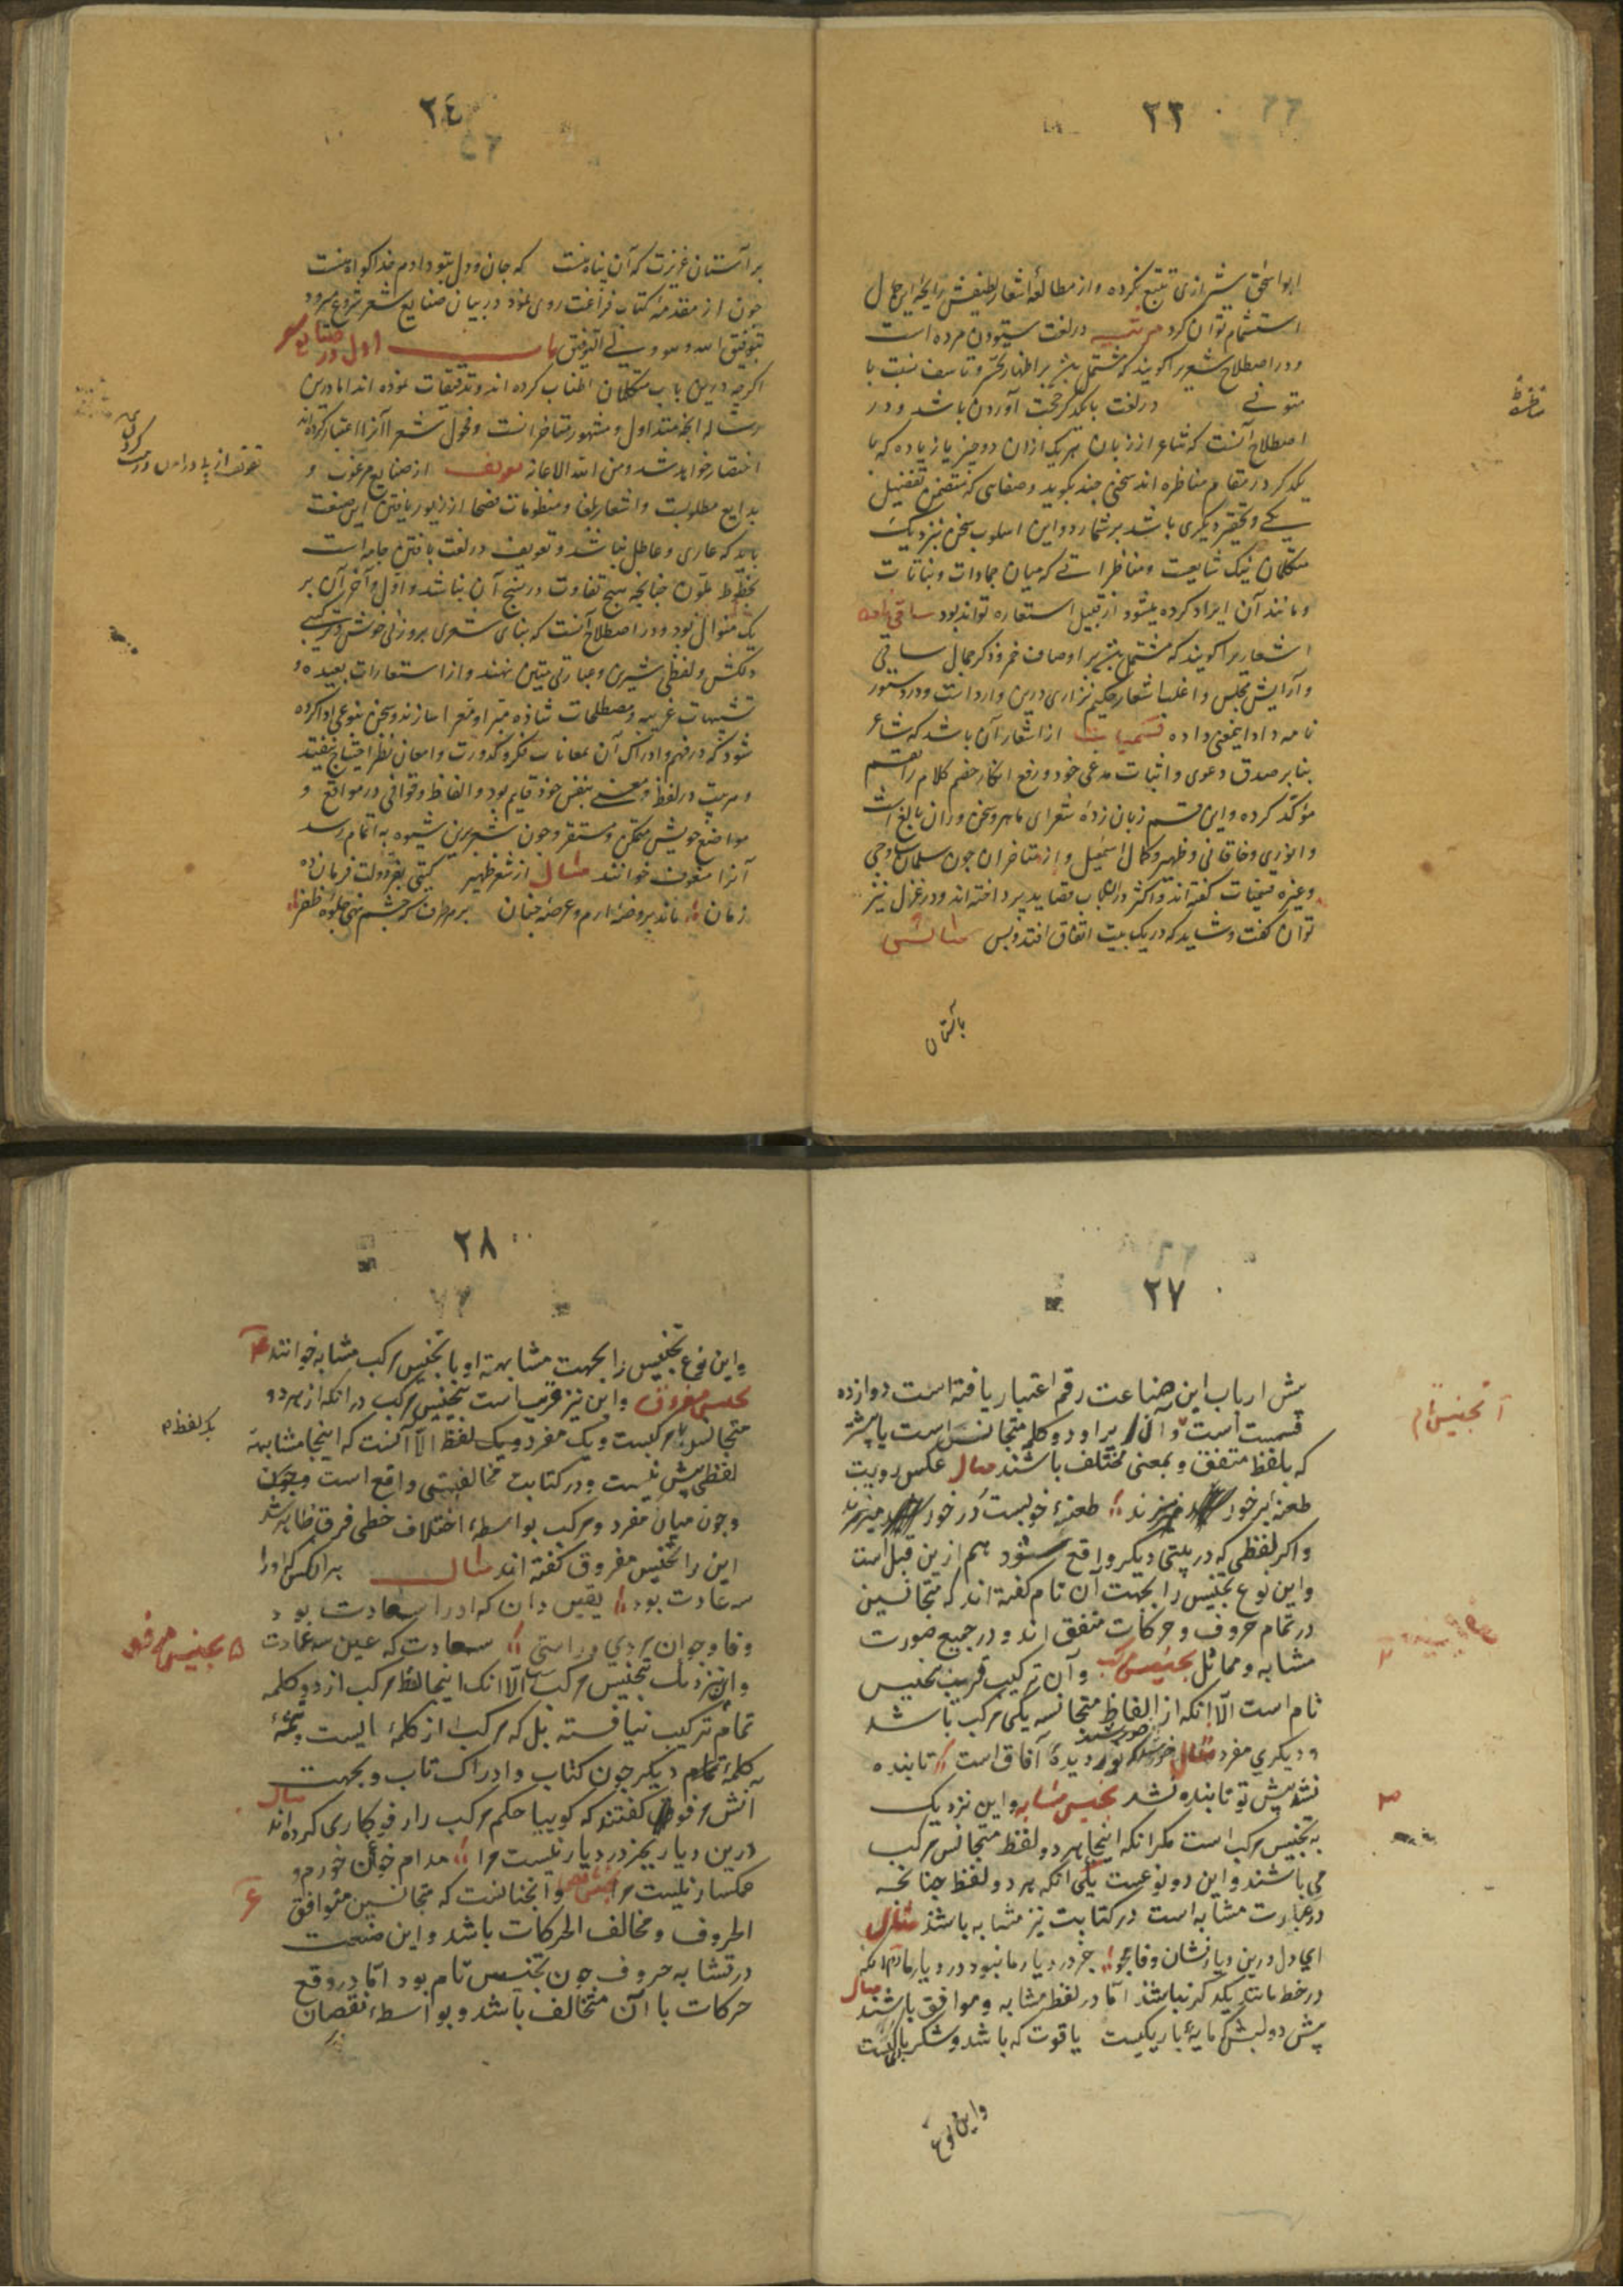 ۲۳
ابواسحق شیرازی تتبع نکرده و از مطالعهٔ اشعار لطیفش رایحهٔ این حال
استشمام توان کرد مرثیه در لغت ستودن مرده است
و در اصطلاح شعریرا کویند که مشتمل باشد بر اظهار تحسّر و تاسف نسبت با
متوفی در لغت با یکدکر حجت آوردن باشد و در
مناظره
اصطلاح آنست که شاعر از زبان هر یک ازان دو چیز یا زیاده که با
یکدکر در مقام مناظره اند سخنی چند بکوید و صفاتی که متضمن تفضیل
یکی و تحقیر دیکری باشد بر شمارد و این اسلوب سخن نزدیک
متکلمان نیک شایعست و مناظراتی که میان جمادات و نباتات
و مانند آن ایراد کرده میشود از قبیل استعاره تواند بود ساقی نامه
اشعاریرا کویند که مشتمل باشد بر اوصاف خمر و ذکر جمال ساقی
و آرایش مجلس و اغلب اشعار حکیم نزاری درین وارد است و در دستور
نامه داد اینمعنی داده قسمیات از اشعار آن باشد که شاعر
بنابر صدق دعوی و اثبات مدعی خود و رفع انکار خصم کلام را بقسم
مؤکّد کرده و این قسم زبان زدهٔ شعرای ماهر و سخن وران بالغ است
و انوری و خاقانی و ظهیر و کمال اسمعیل و از متاخران چون سلمان ساوجی
و غیره قسمیات کفته اند و اکثر در این باب قصاید پرداخته اند و در غزل نیز
توان کفت و شاید که در یک بیت اتفاق افتد و بس مثالش
بآستان
۲٤
بر آستان عزیزت که آن پناه منست که جان و دل بتو دادم خدا کواه منست
چون از مقدمهٔ کتاب فراغت روی نمود در بیان صنایع شعر شروع میرود
بتوفیق الله و هو ولی التوفیق باب اول در صنایع شعر
اکرچه درین باب متکلمان اطناب کرده اند و تدقیقات نموده اند اما درین
رساله آنچه متداول و مشهور متاخرانست و فحول شعرا آنرا اعتبار کرده اند
اختصار خواهد شد و من الله الاعانه تفویف از صنایع مرغوب و
بدایع مطلوبست و اشعار بلغا و منظومات فصحا از زیور یافتن این صنعت
باید که عاری و عاطل نباشد و تفویف در لغت بافتن جامه است
بخطوط ملوّن چنانچه هیچ تفاوت در نسج آن نباشد و اول و آخر آن بر
یک منوال بود و در اصطلاح آنست که بنای شعری بر وزنی خوش و ترکیبی
دلکش و لفظی شیرین و عبارتی متین نهند و از استعارات بعیده و
تشبیهات غریبه و مصطلحات شاذه مبرا و معرا سازند و سخن بنوعی ادا کرده
شود که در فهم و ادراک آن بمعانات فکر و کدورت و امعان نظر احتیاج نیفتد
و هر بیت در لفظ و معنی بنفس خود قایم بود و الفاظ و قوافی در مواقع و
مواضع خویش متمکن و مستقر و چون شعر برین شیوه به اتمام رسد
آنرا مفوّف خوانند مثال از شعر ظهیر کیتی بفر دولت فرمان ده
زمان ماند بروضهٔ ارم و عرصهٔ جنان بر هر طرف که چشم نهی جلوهٔ ظفر
۲۷
پیش ارباب این صناعت رقم اعتبار یافته است دوازده
قسمست اَ تجنیس تام و آن ایراد دو کلمهٔ متجانس است یا بیشتر
که بلفظ متفق و بمعنی مختلف باشند مثال عکس رویت
طعنه بر خور میزند طعنهٔ خوبست در خور میزند
و اکر لفظی که در بیتی دیکر واقع شود هم ازین قبل است
و این نوع تجنیس را بجهت آن تام کفته اند که متجانسین
در تمام حروف و حرکات متفق اند و در جمیع صورت
مشابه و مماثل تجنیس مرکب و آن ترکیب قریب تجنیس
تام است الّا آنکه از الفاظ متجانسه یکی مرکب باشد
و دیکری مفرد مثال خورشید که نور دیدهٔ آفاق است تابنده
نشد پیش تو تابنده نشد تجنیس مشابه و این نزدیک
به تجنیس مرکب است مکر آنکه اینجا هر دو لفظ متجانس مرکب
می باشند و این دو نوعست یکی آنکه هر دو لفظ چنانچه
در عبارت مشابه است در کتابت نیز مشابه باشد مثال
ای دل درین دیار نشان وفا مجو جز درد یار ما نبود در دیار ما دوم آنکه
در خط مانند یکدیکر نباشند اما در لفظ مشابه و موافق باشند مثال
پیش دو لبش که مایهٔ باریکیست یاقوت که باشد و شکر باری کیست
و این نوع
۲۸
و این نوع تجنیس را بجهت مشابهت او با تجنیس مرکب مشابه خوانند
تجنیس مفروق و این نیز قریب است بتجنیس مرکب در آنکه از هر دو
متجانس یکی مرکبست و یک مفرد و یک لفظ الّا آنست که اینجا مشابهة
لفظی بیش نیست و در کتابت مخالفتی واقع است
و چون میان مفرد و مرکب بواسطهٔ اختلاف خطی فرق ظاهر شد
این را تجنیس مفروق کفته اند مثال هر آنکس که او را
سه عادت بود یقین دان که او را سعادت بود
وفا و جوان مردی و راستی سعادت که عین سه عادت
۵ تجنیس مرفو
و این نزدیک تجنیس مرکب است الّا آنک اینجا لفظ مرکب از دو کلمه
تمام ترکیب نیافته بل که مرکب از کلمهٔ ایست و تتمهٔ
کلمهٔ دیکر چون کتاب و ادراک تاب و بجهت
آنش مرفو کفتند که کوییا حکم مرکب را رفو کاری کرده اند مثال
درین دیار بجز درد یار نیست مرا مدام خون خورم و
غمکسار نیست مرا تجنیس ناقص و آنچنانست که متجانسین متوافق
الحروف و مخالف الحرکات باشد و این صنعت
در تشابه حروف چون تجنیس تام بود امّا در وقع
حرکات با آن متخالف باشد و بواسطهٔ نقصان